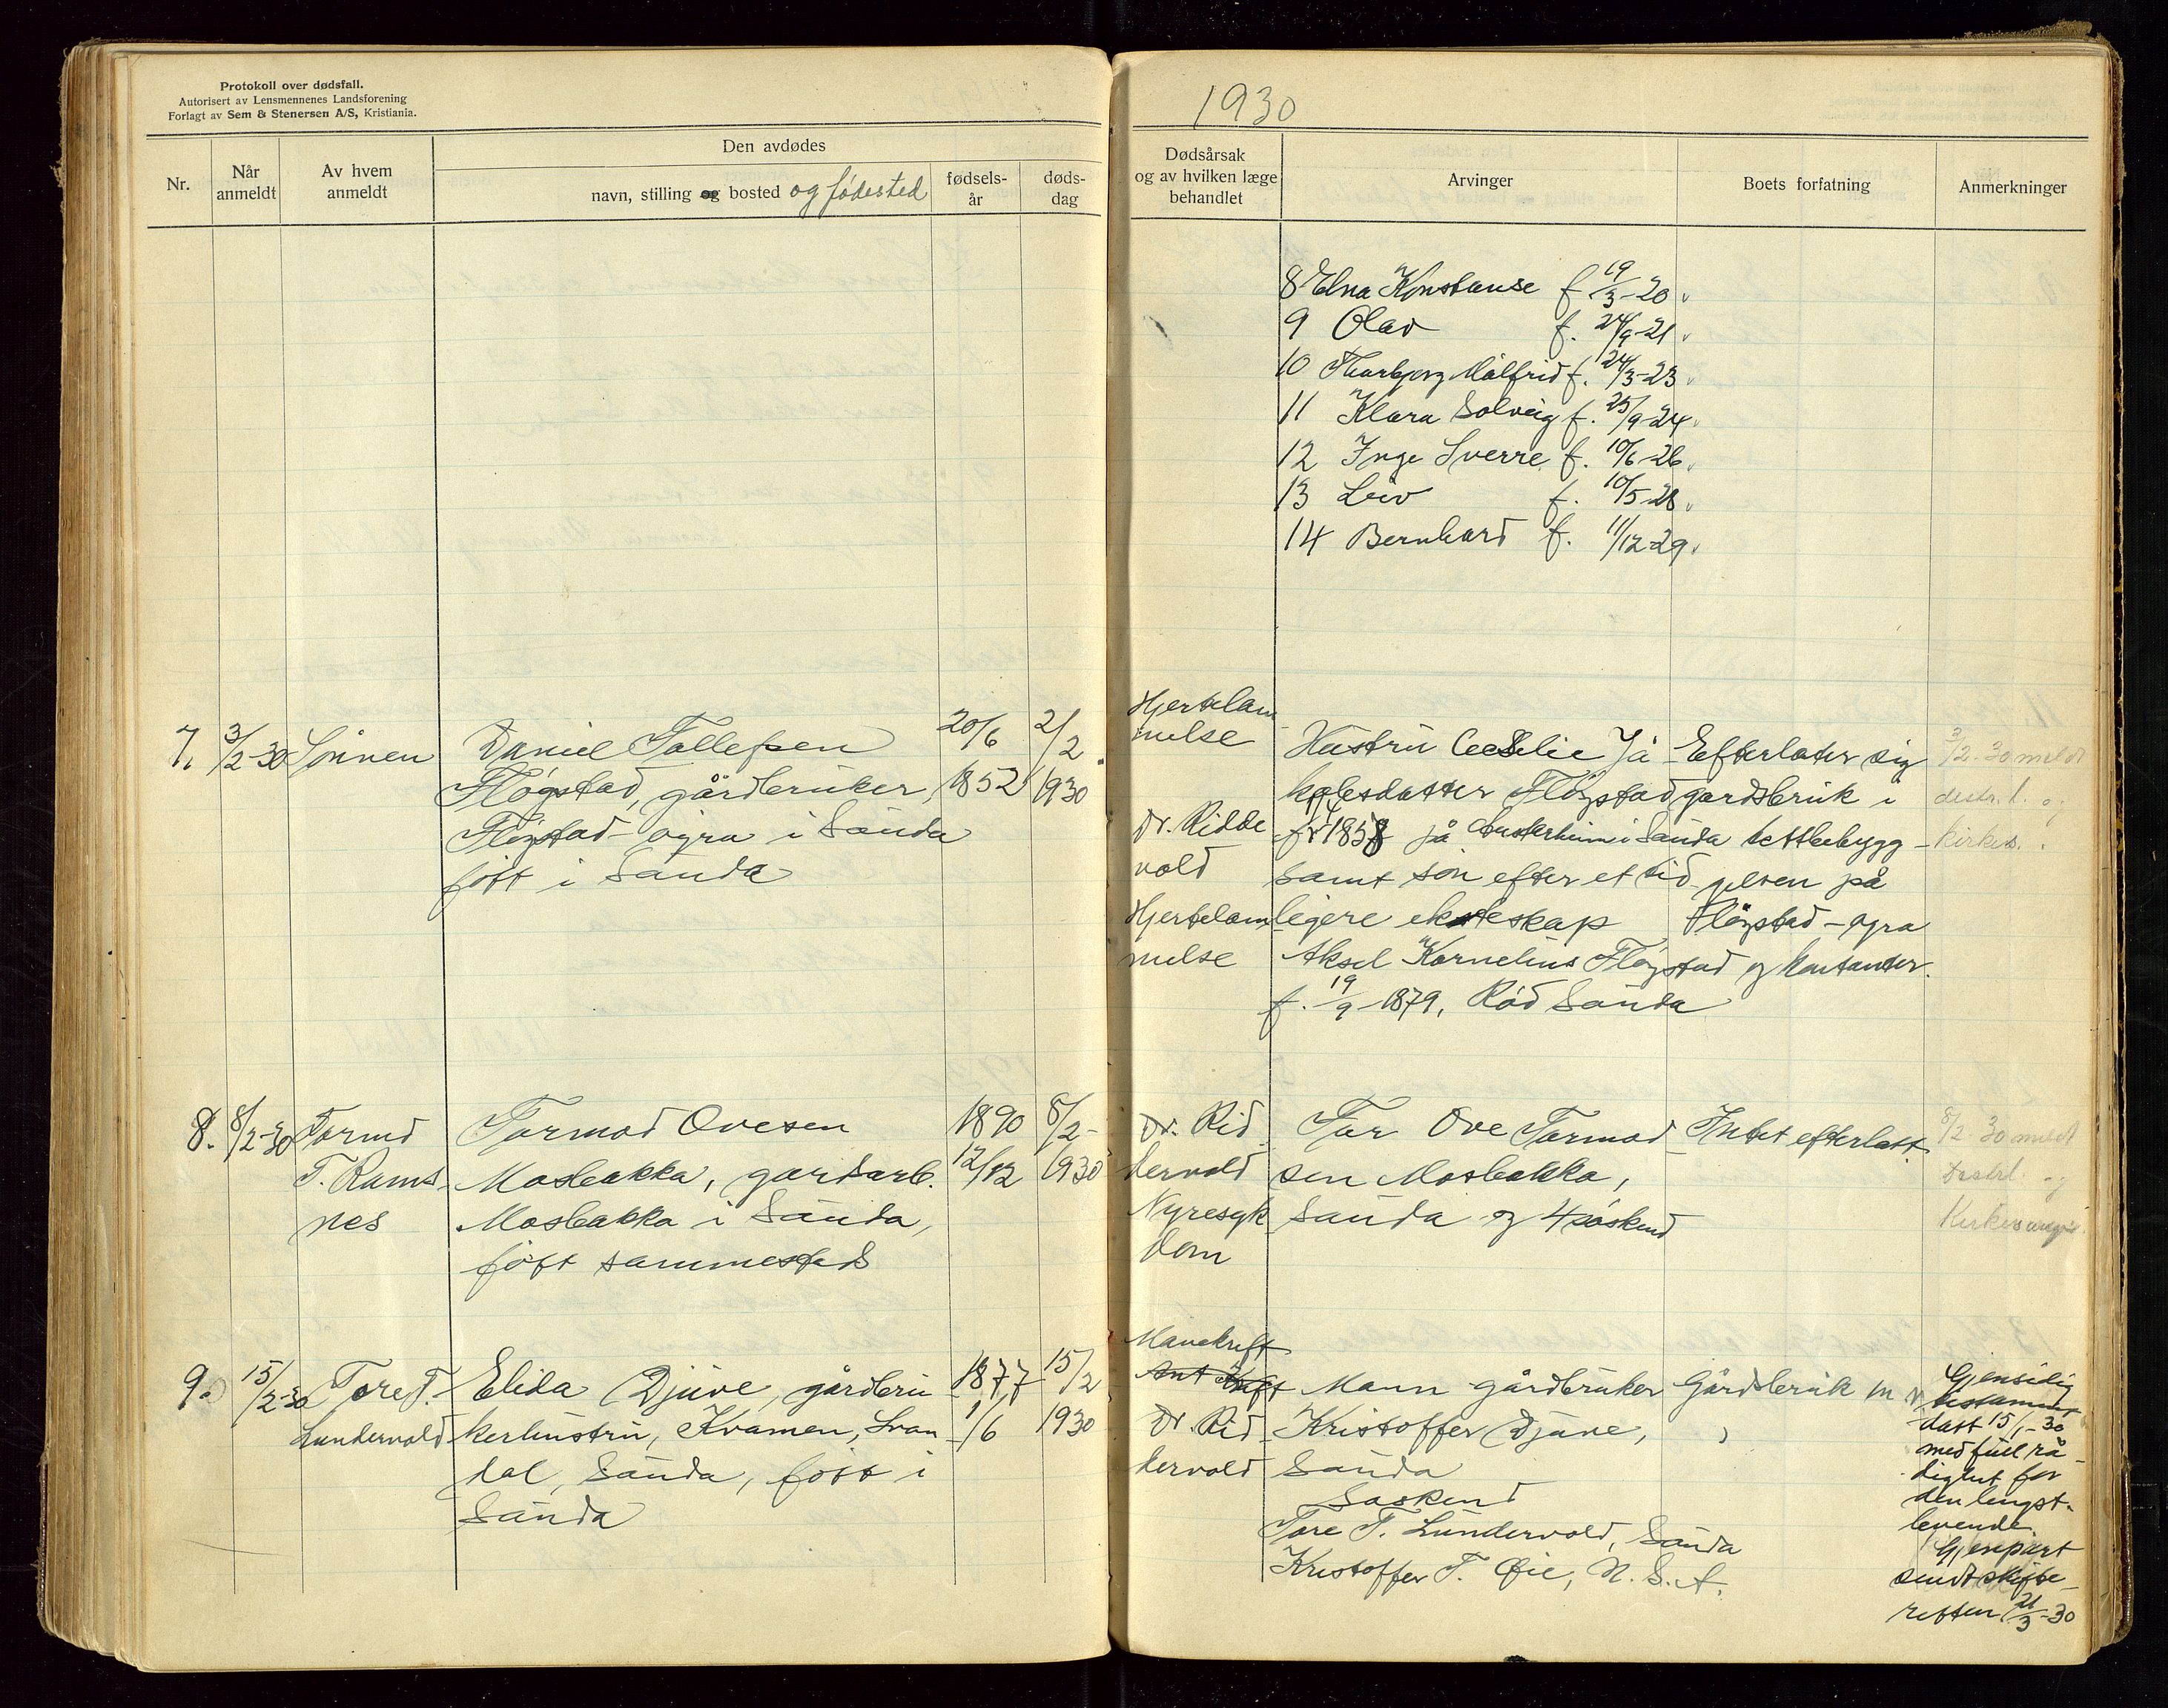 Protokoll over dødsfall.
Autorisert av Lensmennenes Landsforening
Forlagt av Sem & Stenersen A/S, Kristiania.
1930
Nr.
Når
anmeldt
Av hvem
anmeldt
Den avdødes
navn, stilling og bosted og fødested
fødsels-
år
døds-
dag
Dødsårsak
og av hvilken læge
behandlet
Arvinger
Boets forfatning
Anmerkninger
8 Elna Konstanse f. 19/3-20
9 Olav f. 24/9-21
10 Thorbjørg Målfrid f. 24/3-23
11 Klara Solveig f. 25/9-24
12 Inge Sverre f. 10/6-26
13 Leiv f. 10/5-28
14 Bernhard f. 11/12-29
7. 3/2-30 Sönnen
Daniel Tollefsen
Flögstad, gårdbruker,
Flögstad-øyra i Sauda
fött i Sauda
20/6
1852
2/2
1930
Hjertelam
melse
Dr. Ridde
vold
Hjertelam
melse
Hustru Ceselie Ja-
kobsdatter Flögstad
f. 1858 på Austarheim i Sauda
samt sön efter et tid-
ligere ekteskap
Aksel Kornelius Flögstad
f. 19/9-1879, Röd Sauda
Efterlater sig
gardsbruk i
tettbebygg-
elsen på
Flögstad-øyra
og kontanter.
3/2-30 meldt
distr.l. og
kirkev.
8. 8/2-30 Tormd
T. Rams-
nes
Tormod Ovesen
Mosbakka, gardarb.
Mosbakka i Sauda,
fött sammesteds
1890
12/12
8/2-
1930
Dr. Rid-
dervold
Nyresyk-
dom
Far Ove Tormod-
sen Mosbakka,
Sauda og 4 söskend
Intet efterlatt
8/2 30 meldt
distrl. og
Kirkeverge
9. 15/2-30 Tore T.
Lundervold
Elida Djuve, gårdbru-
kerhustru, Kvamen, Svan-
dal, Sauda, fött i
Sauda
1877
1/6
15/2
1930
Mavekreft
Dr. Rid-
dervold
Mann gårdbruker
Kristoffer Djuve,
Sauda
Söskend
Tore T. Lundervold, Sauda
Kristoffer T. Øie, N. S. A.
Gårdsbruk m. v.
Gjensidig
testament
datt 15/1-30
med full rå-
dighet for
den lengst-
levende.
Gjenpart
sendt skifte-
retten 21/3-30